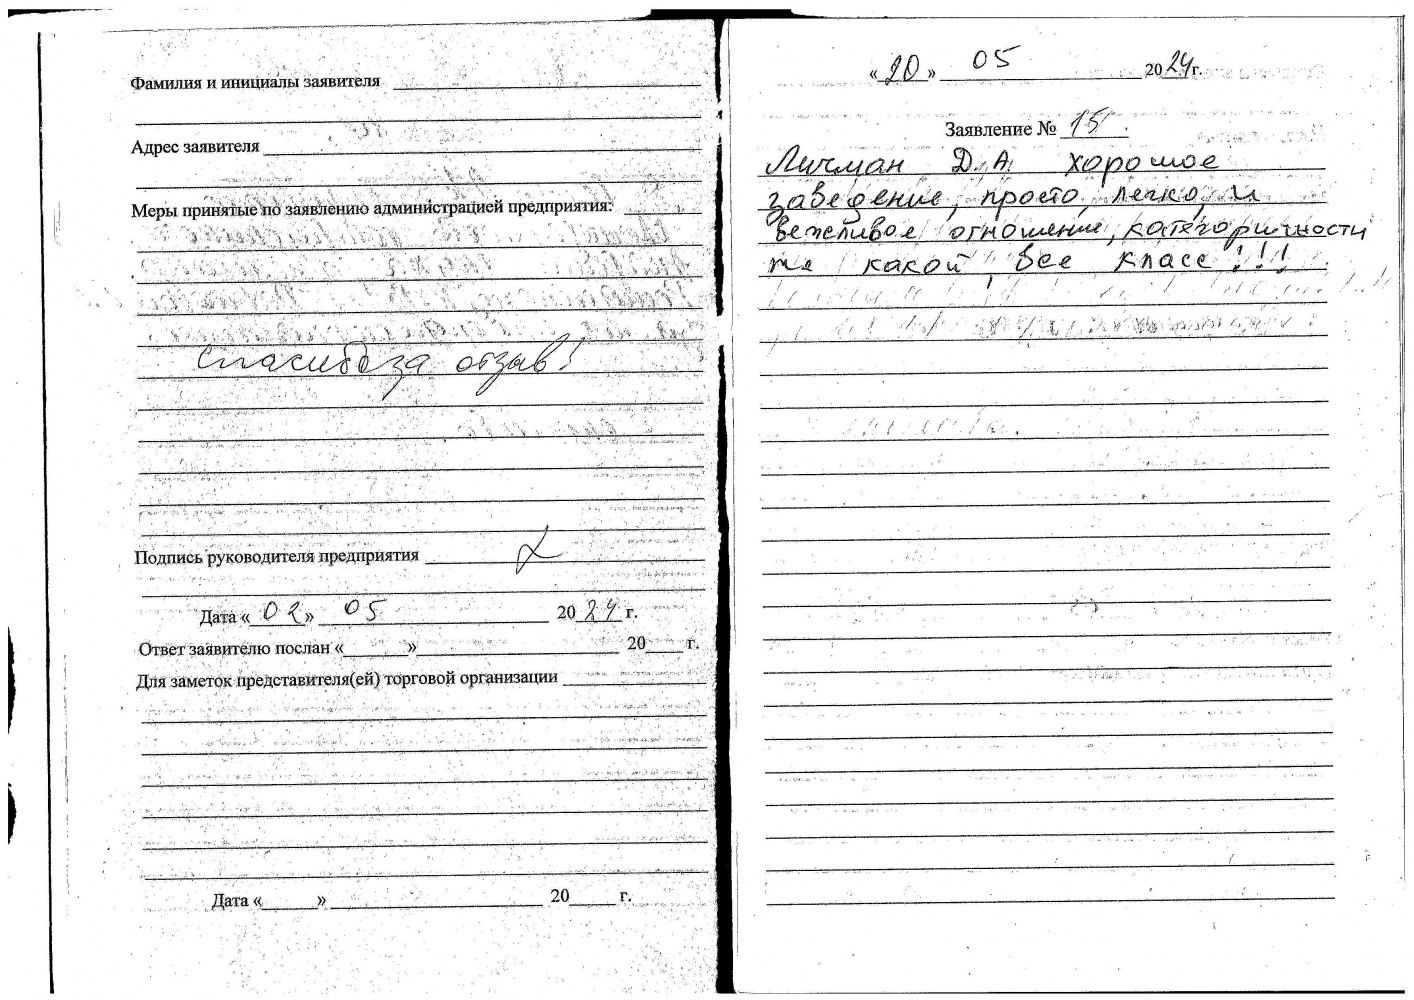 Фамилия и инициалы заявителя
Адрес заявителя
Меры принятые по заявлению администрацией предприятия:
Спасибо за отзыв!
Подпись руководителя предприятия
Дата «02» 05 2024 г.
Ответ заявителю послан «______»______ 20____ г.
Для заметок представителя(ей) торговой организации
Дата «______»______ 20_____ г.
«20» 05 2024г.
Заявление № 15
Личман Д.А. хорошое
заведение, просто, легко, и
вежливое отношение, категоричности
ни какой, все класс!!!